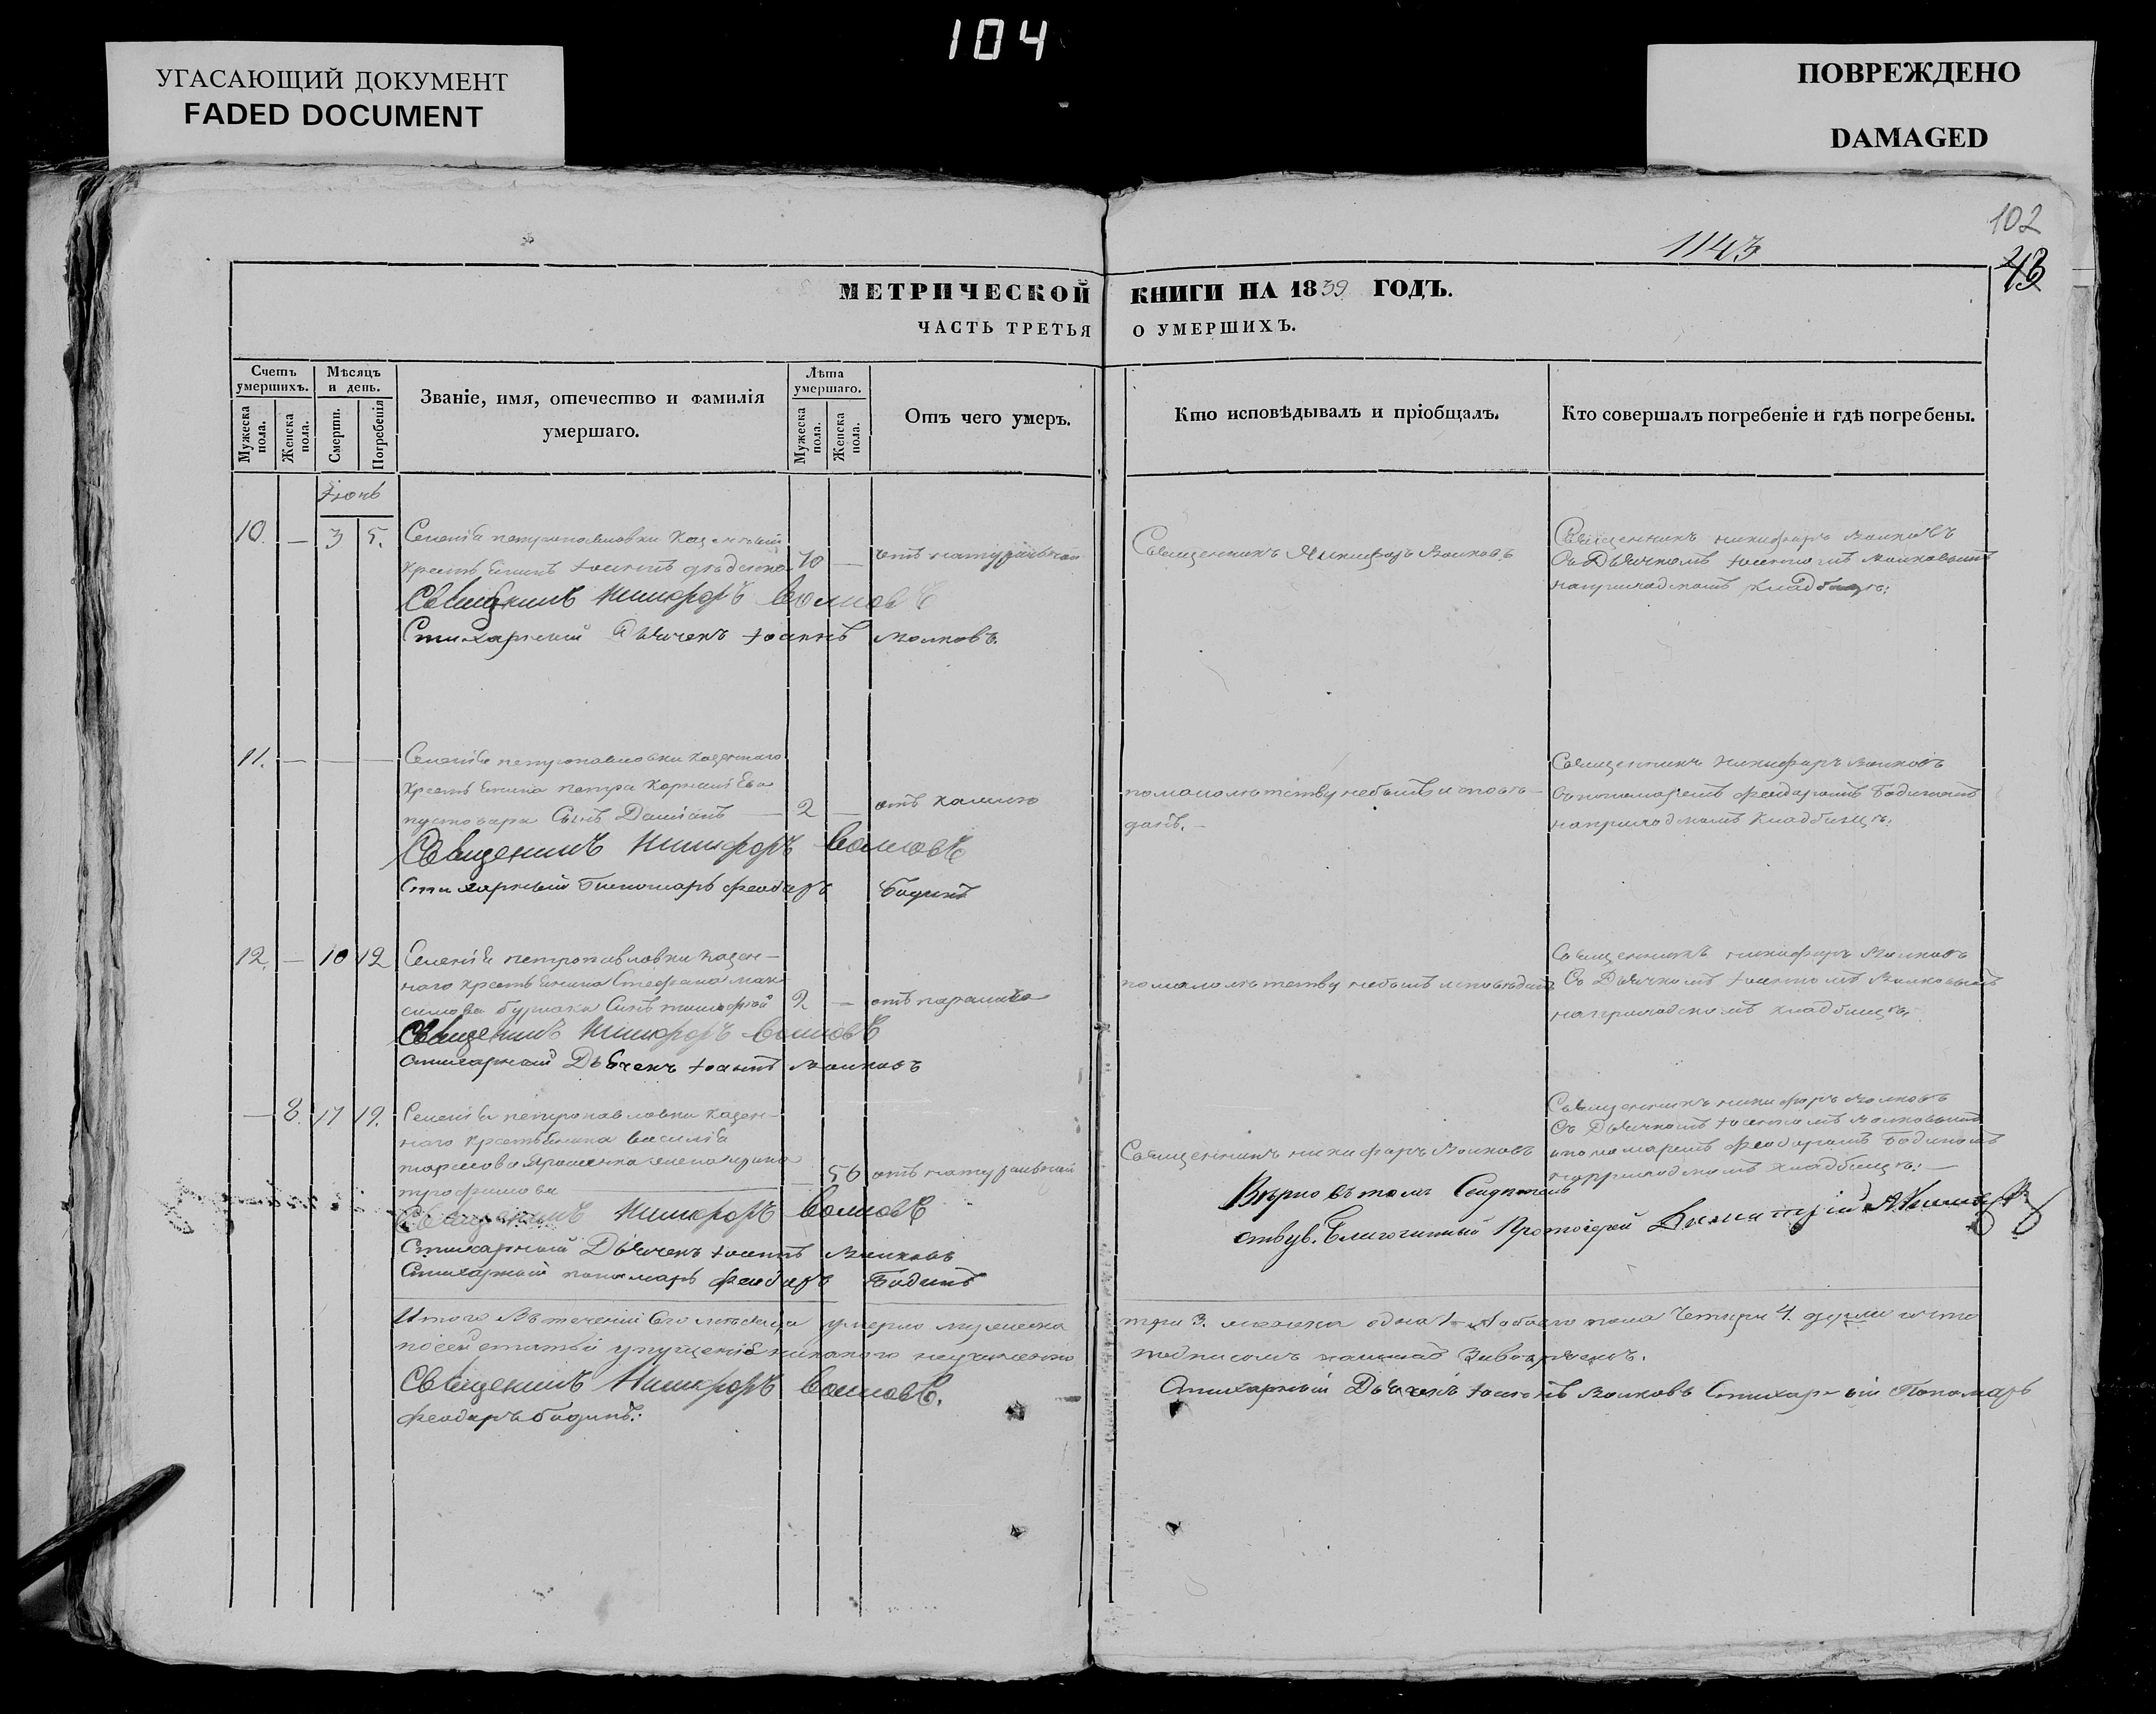 104
УГАСАЮЩИЙ ДОКУМЕНТ
FADED DOCUMENT
ПОВРЕЖДЕНО
DAMAGED
102
1143
43
МЕТРИЧЕСКОЙ КНИГИ НА 1839 ГОДЪ.
ЧАСТЬ ТРЕТЬЯ О УМЕРШИХЪ.
Счетъ умершихъ.
Мѣсяцъ и день.
Званіе, имя, отечество и фамилія умершаго.
Лѣта умершаго.
Отъ чего умеръ.
Кто исповѣдывалъ и пріобщалъ.
Кто совершалъ погребеніе и гдѣ погребены.
Мужеска пола.
Женска пола.
Смерти.
Погребенія
Мужеска пола.
Женска пола.
Іюнь
10. — 3 5. Селенія петропавловки Казенный
крестьянинъ Іоаннъ 70 — отъ натуральной
Священникъ Никифоръ Волковъ
Стихарный Дьячекъ Іоаннъ Волковъ.
Священникъ Никифоръ Волковъ
Священникъ никифоръ Волковъ
Съ Дьячкомъ Іоанномъ Волковымъ
на приходскомъ кладбищѣ:
11. — — — Селенія петропавловки казенного
крестьянина петра
Сынъ Даміанъ — 2 — отъ
Священникъ Никифоръ Волковъ
Стихарный Пономарь феодоръ Бодинъ
по малолетству небылъ
Священникъ Никифоръ Волковъ
Съ пономаремъ феодоромъ Бодиномъ
на приходскомъ кладбищѣ:
12. — 10 12 Селенія петропавловки казен-
ного крестьянина Стефана мак
симова бурлака Сынъ тимофей 2 — отъ паралича
Священникъ Никифоръ Волковъ
стихарный Дьячекъ Іоаннъ Волковъ
по малолетству небылъ исповѣданъ
Священникъ никифоръ Волковъ
Съ Дьячкомъ Іоанномъ Волковымъ
на приходскомъ кладбищѣ.
— 8. 17 19. Селенія петропавловки казен-
ного крестьянина василія
жена
трофимова — 56 отъ натуральной
Священникъ Никифоръ Волковъ
Стихарный Дьячекъ Іоаннъ Волковъ
Стихарный пономарь феодоръ Бодинъ
Священникъ никифоръ Волковъ
Священникъ никифоръ Волковъ
Съ Дьячкомъ Іоанномъ Волковымъ
и пономаремъ феодоромъ Бодиномъ
на приходскомъ кладбищѣ: —
Вѣрно въ томъ
Благочинный Протоіерей
Итого Въ теченіи Сего месяца умерло мужеска три 3. женска одна 1 — а обоего пола Четыри 4. души и что
по сей статьи упущенія никакого неучинено подписомъ нашимъ
Священникъ Никифоръ Волковъ. Стихарный Дьячекъ Іоаннъ Волковъ Стихарный Пономарь
феодоръ бодинъ: